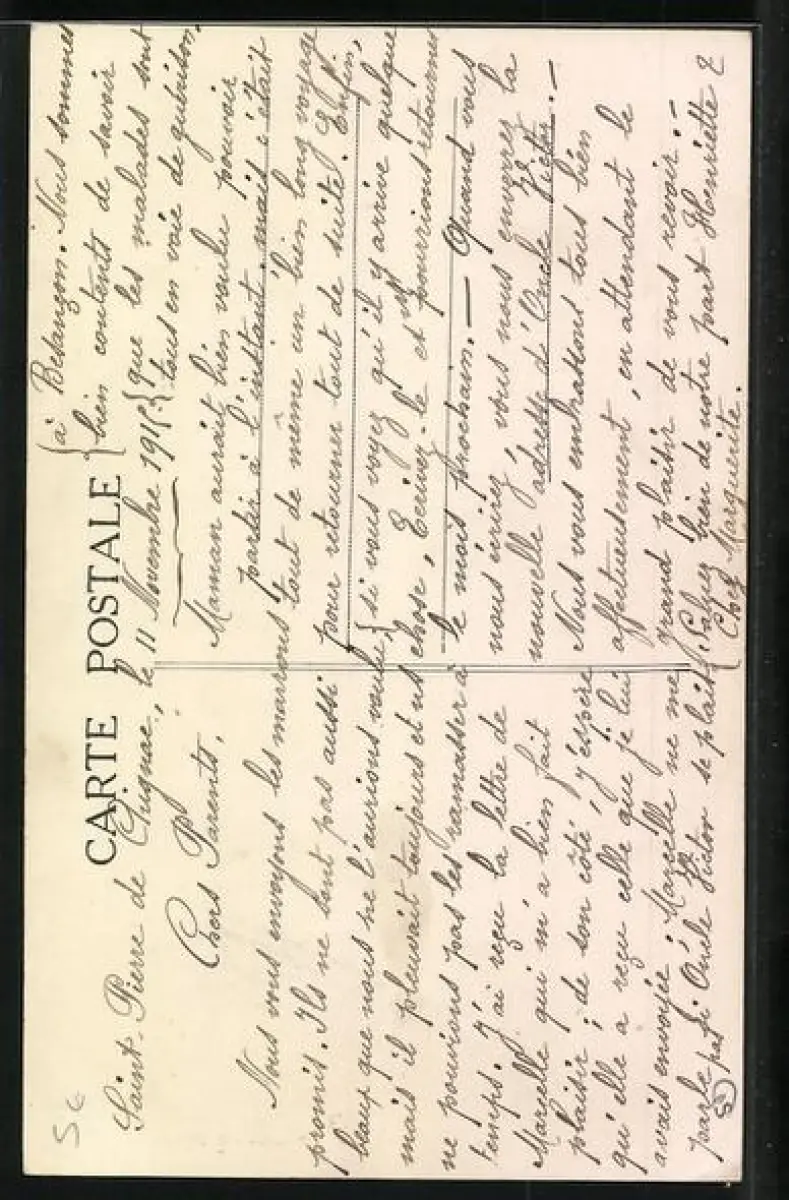 CARTE POSTALE
Saint-Pierre de Chignac, le 11 Novembre 1915
Chers Parents,
Nous vous envoyons les marrons
promis. Ils ne sont pas aussi
beaux que nous ne l'aurions voulu,
mais il pleuvait toujours et
ne pouvions pas les ramasser à
temps. J'ai reçu la lettre de
Marcelle qui m'a bien fait
plaisir ; de son côté, j'espère
qu'elle a reçu celle que je lui
avais envoyée. Marcelle ne me
parle pas si Oncle Victor se plait
à Besançon. Nous sommes
bien contents de savoir
que les malades sont
tous en voie de guérison.
Maman aurait bien voulu pouvoir
partir à l'instant, mais c'était
tout de même un bien long voyage
pour retourner tout de suite. Enfin,
si vous voyez qu'il y arrive quelque
chose, Ecrivez-le et pourrions retourner
le mois prochain. — Quand vous
nous écrirez, vous nous enverrez la
nouvelle adresse d'Oncle Victor. —
Nous vous embrassons tous bien
affectueusement, en attendant le
grand plaisir de vous revoir. —
Saluez bien de notre part Henriette &
Chez Marguerite.
56